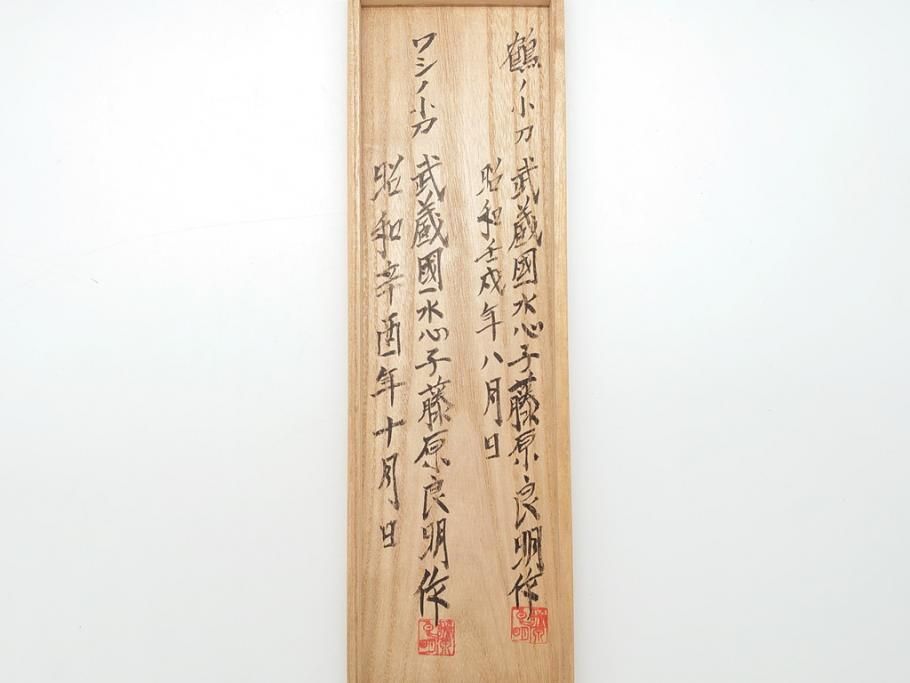 鶴ノ小刀 武蔵國水心子藤原良明作
昭和壬戌年八月日
ワシノ小刀 武蔵國水心子藤原良明作
昭和辛酉年十月日